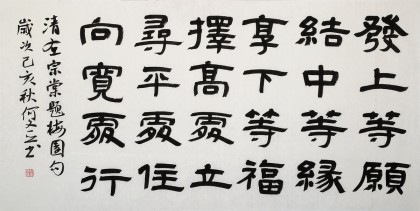 發上等願
結中等緣
享下等福
擇高處立
尋平處住
向寬處行
清左宗棠題梅園句
歲次己亥秋何文书